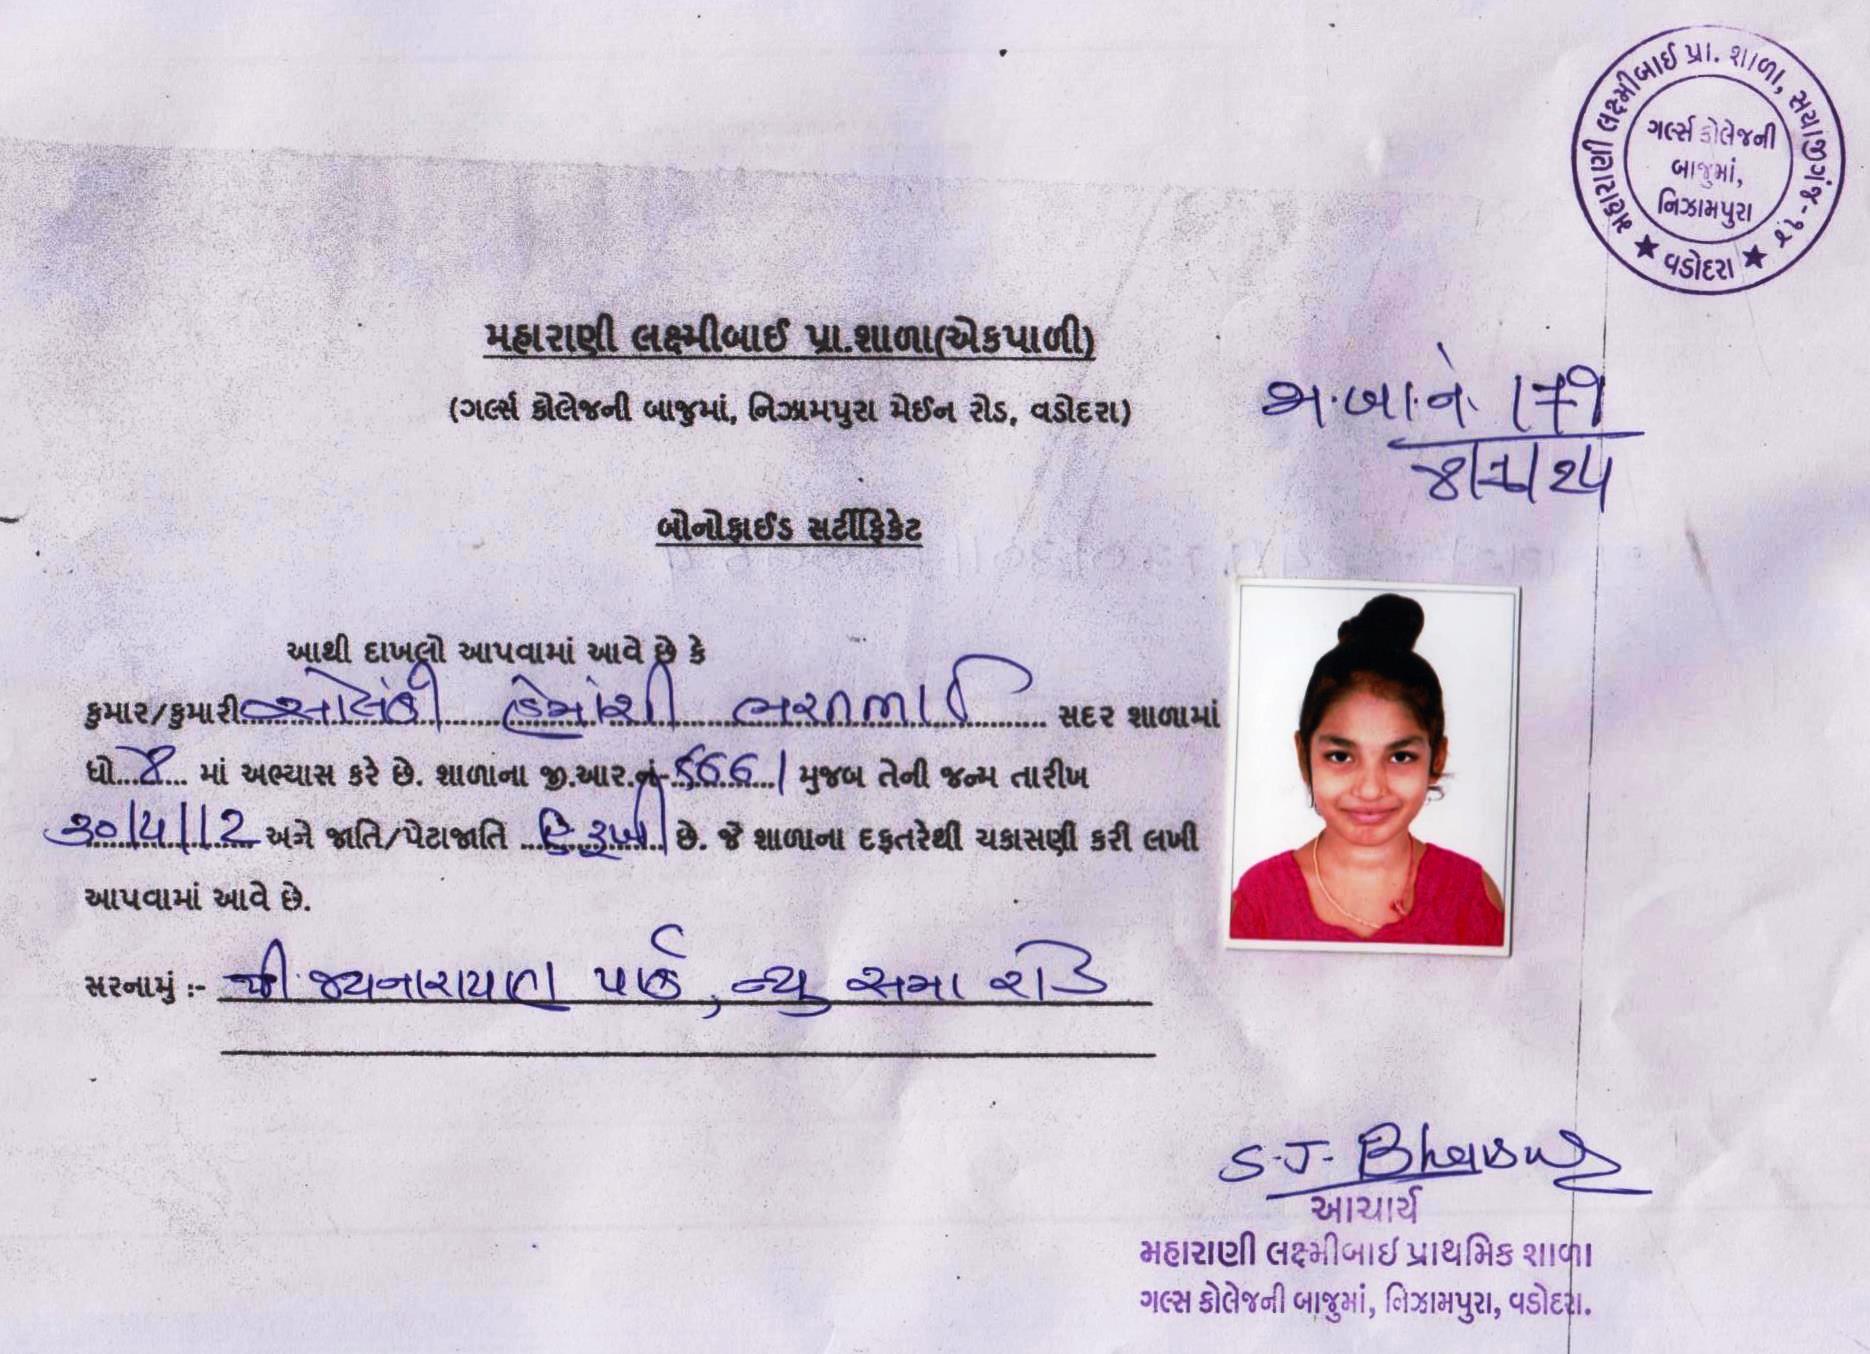 મહારાણી લક્ષ્મીબાઈ પ્રા. શાળા, સયાજીગંજ-૧૨
ગર્લ્સ કોલેજની
બાજુમાં,
નિઝામપુરા
★ વડોદરા ★
મહારાણી લક્ષ્મીબાઈ પ્રા.શાળા(એકપાળી)
(ગર્લ્સ કોલેજની બાજુમાં, નિઝામપુરા મેઈન રોડ, વડોદરા)
બોનોફાઈડ સર્ટીફિકેટ
આથી દાખલો આપવામાં આવે છે કે
કુમાર/કુમારી સોલંકી હેમાંશી ભરતભાઈ સદર શાળામાં
ધો. ૪ માં અભ્યાસ કરે છે. શાળાના જી.આર.નં- મુજબ તેની જન્મ તારીખ
૩૦/૫/૧૨ અને જાતિ/પેટાજાતિ છે. જે શાળાના દફતરેથી ચકાસણી કરી લખી
આપવામાં આવે છે.
સરનામું :- જયનારાયણ પાર્ક, ન્યુ સમા રોડ
S.J. Bhavsar
આચાર્ય
મહારાણી લક્ષ્મીબાઈ પ્રાથમિક શાળા
ગલ્સ કોલેજની બાજુમાં, નિઝામપુરા, વડોદરા.